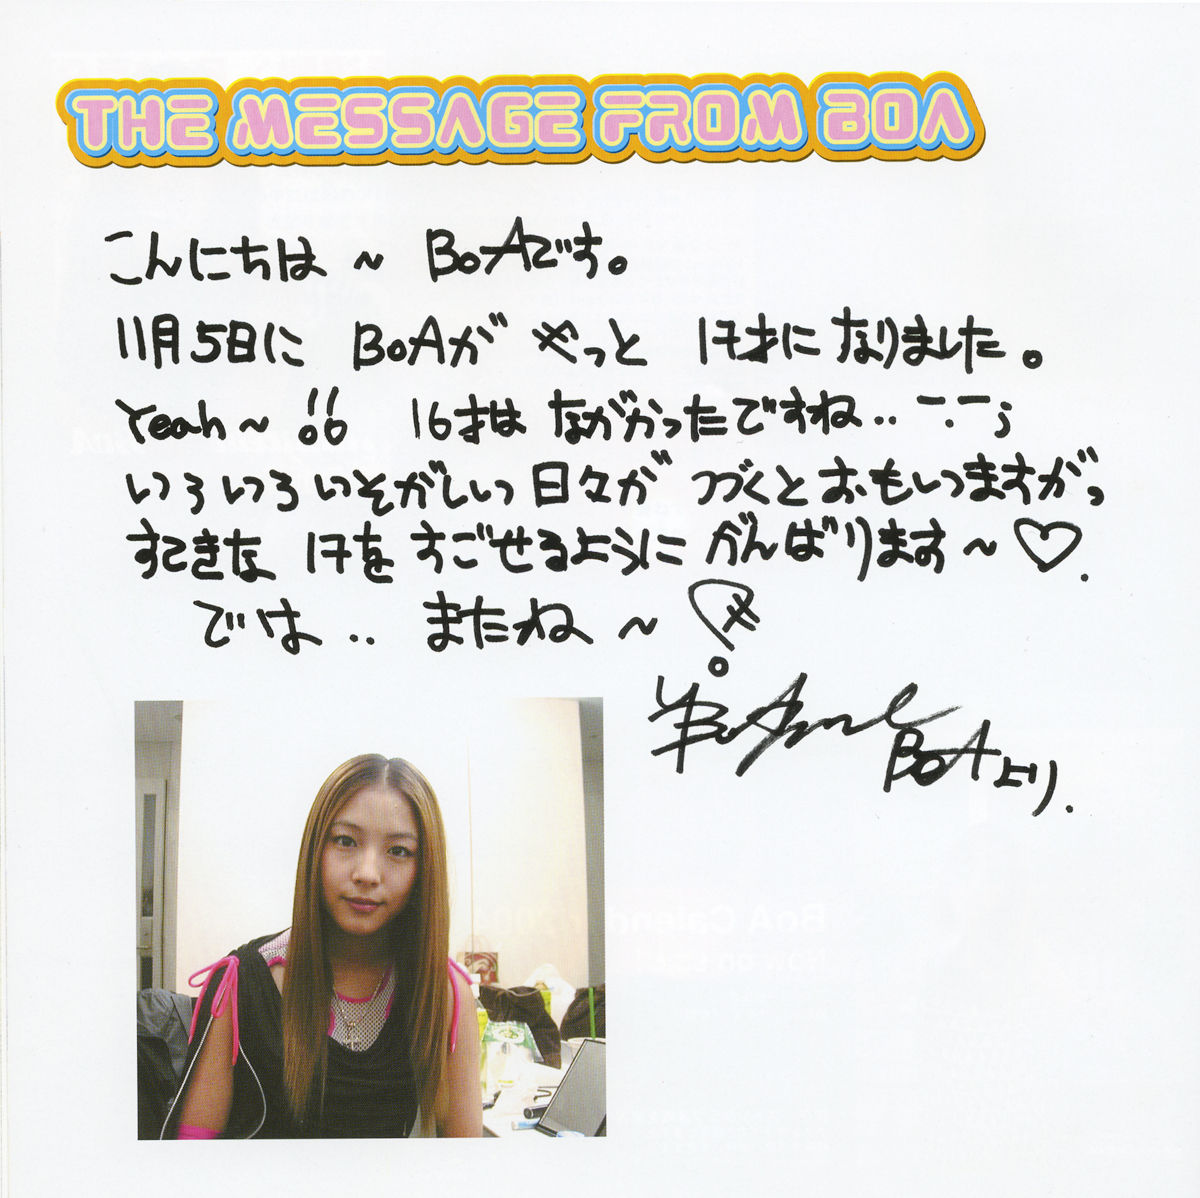 THE MESSAGE FROM BOA
こんにちは ~ BoAです。
11月5日に BoAが やっと 17才に なりました。
Yeah~ !! 16才は ながかったですね.. ー.ー;
いろいろ いそがしいっ 日々が つづくと おもいますがっ
すてきな 17を すごせるように がんばります~♡.
では.. またね ~
BoA
BoAより.